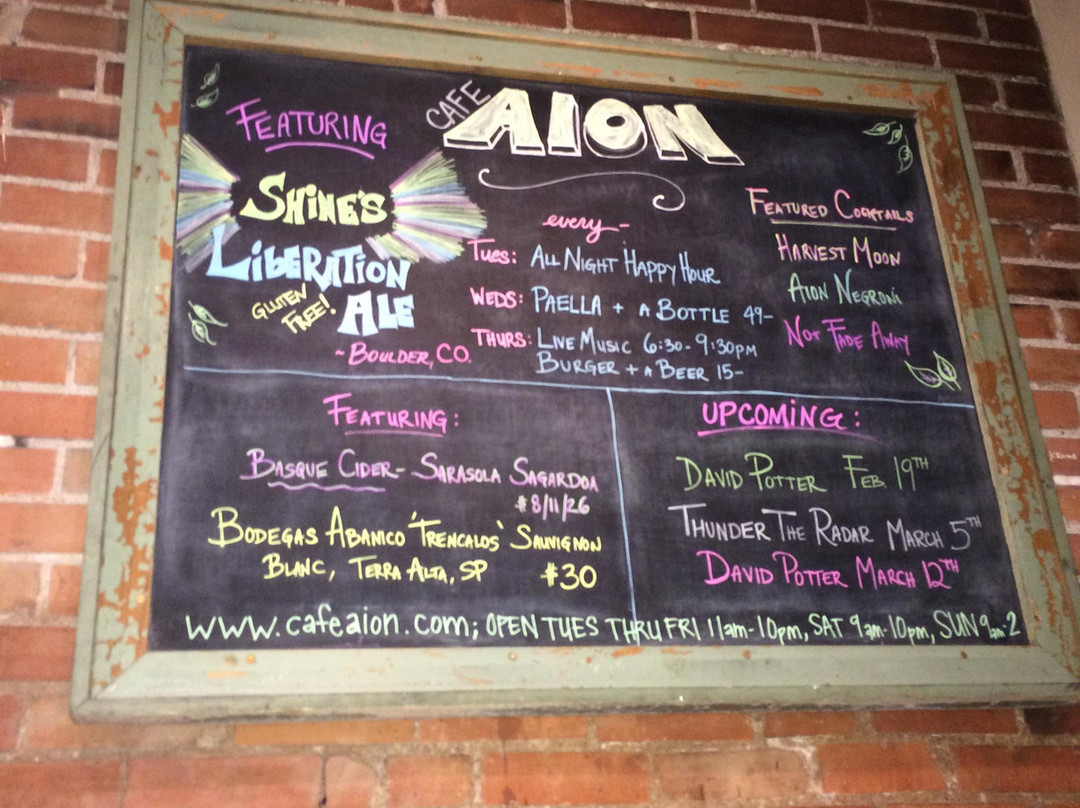 CAFE AION
FEATURING
SHINE'S
LIBERATION
ALE
GLUTEN
FREE!
~ BOULDER, CO.
every -
TUES: ALL NIGHT HAPPY HOUR
WEDS: PAELLA + A BOTTLE 49-
THURS: LIVE MUSIC 6:30-9:30PM
BURGER + A BEER 15-
FEATURED COCKTAILS
HARVEST MOON
AION NEGRONI
NOT FADE AWAY
FEATURING:
BASQUE CIDER - SARASOLA SAGARDOA
$8/11/26
BODEGAS ABANICO 'TRENCALOS' SAUVIGNON
BLANC, TERRA ALTA, SP $30
UPCOMING:
DAVID POTTER FEB. 19TH
THUNDER THE RADAR MARCH 5TH
DAVID POTTER MARCH 12TH
www.cafeaion.com; OPEN TUES THRU FRI 11am-10pm, SAT 9am-10pm, SUN 9am-2